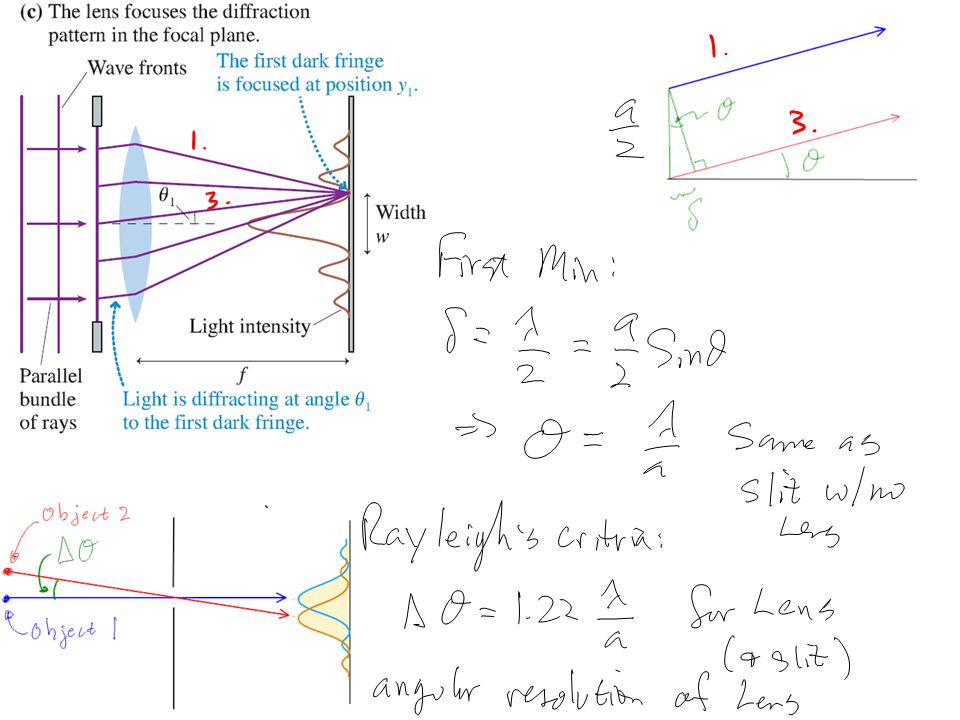 (c) The lens focuses the diffraction
pattern in the focal plane.
Wave fronts
The first dark fringe
is focused at position y₁.
1.
θ₁
3.
Width
w
Light intensity
f
Parallel
bundle
of rays
Light is diffracting at angle θ₁
to the first dark fringe.
1.
a/2
θ
3.
θ
δ
First Min:
δ = λ/2 = a/2 Sinθ
⇒ θ = λ/a Same as
slit w/no
Lens
Object 2
Δθ
Object 1
Rayleigh's critria:
Δθ = 1.22 λ/a for Lens
(& slit)
angular resolution of Lens